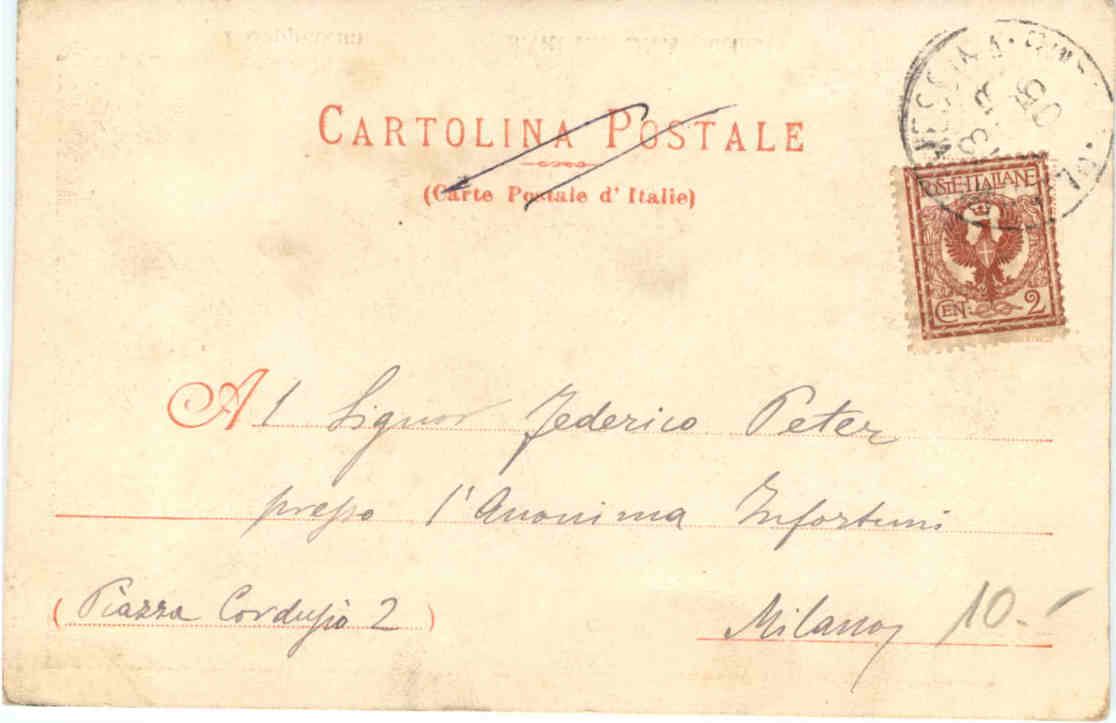 CARTOLINA POSTALE
(Carte Postale d' Italie)
POSTE·ITALIANE
CEN. 2
Al Signor Federico Peter
presso l'Anonima Infortuni
(Piazza Cordusio 2)
Milano
10.-